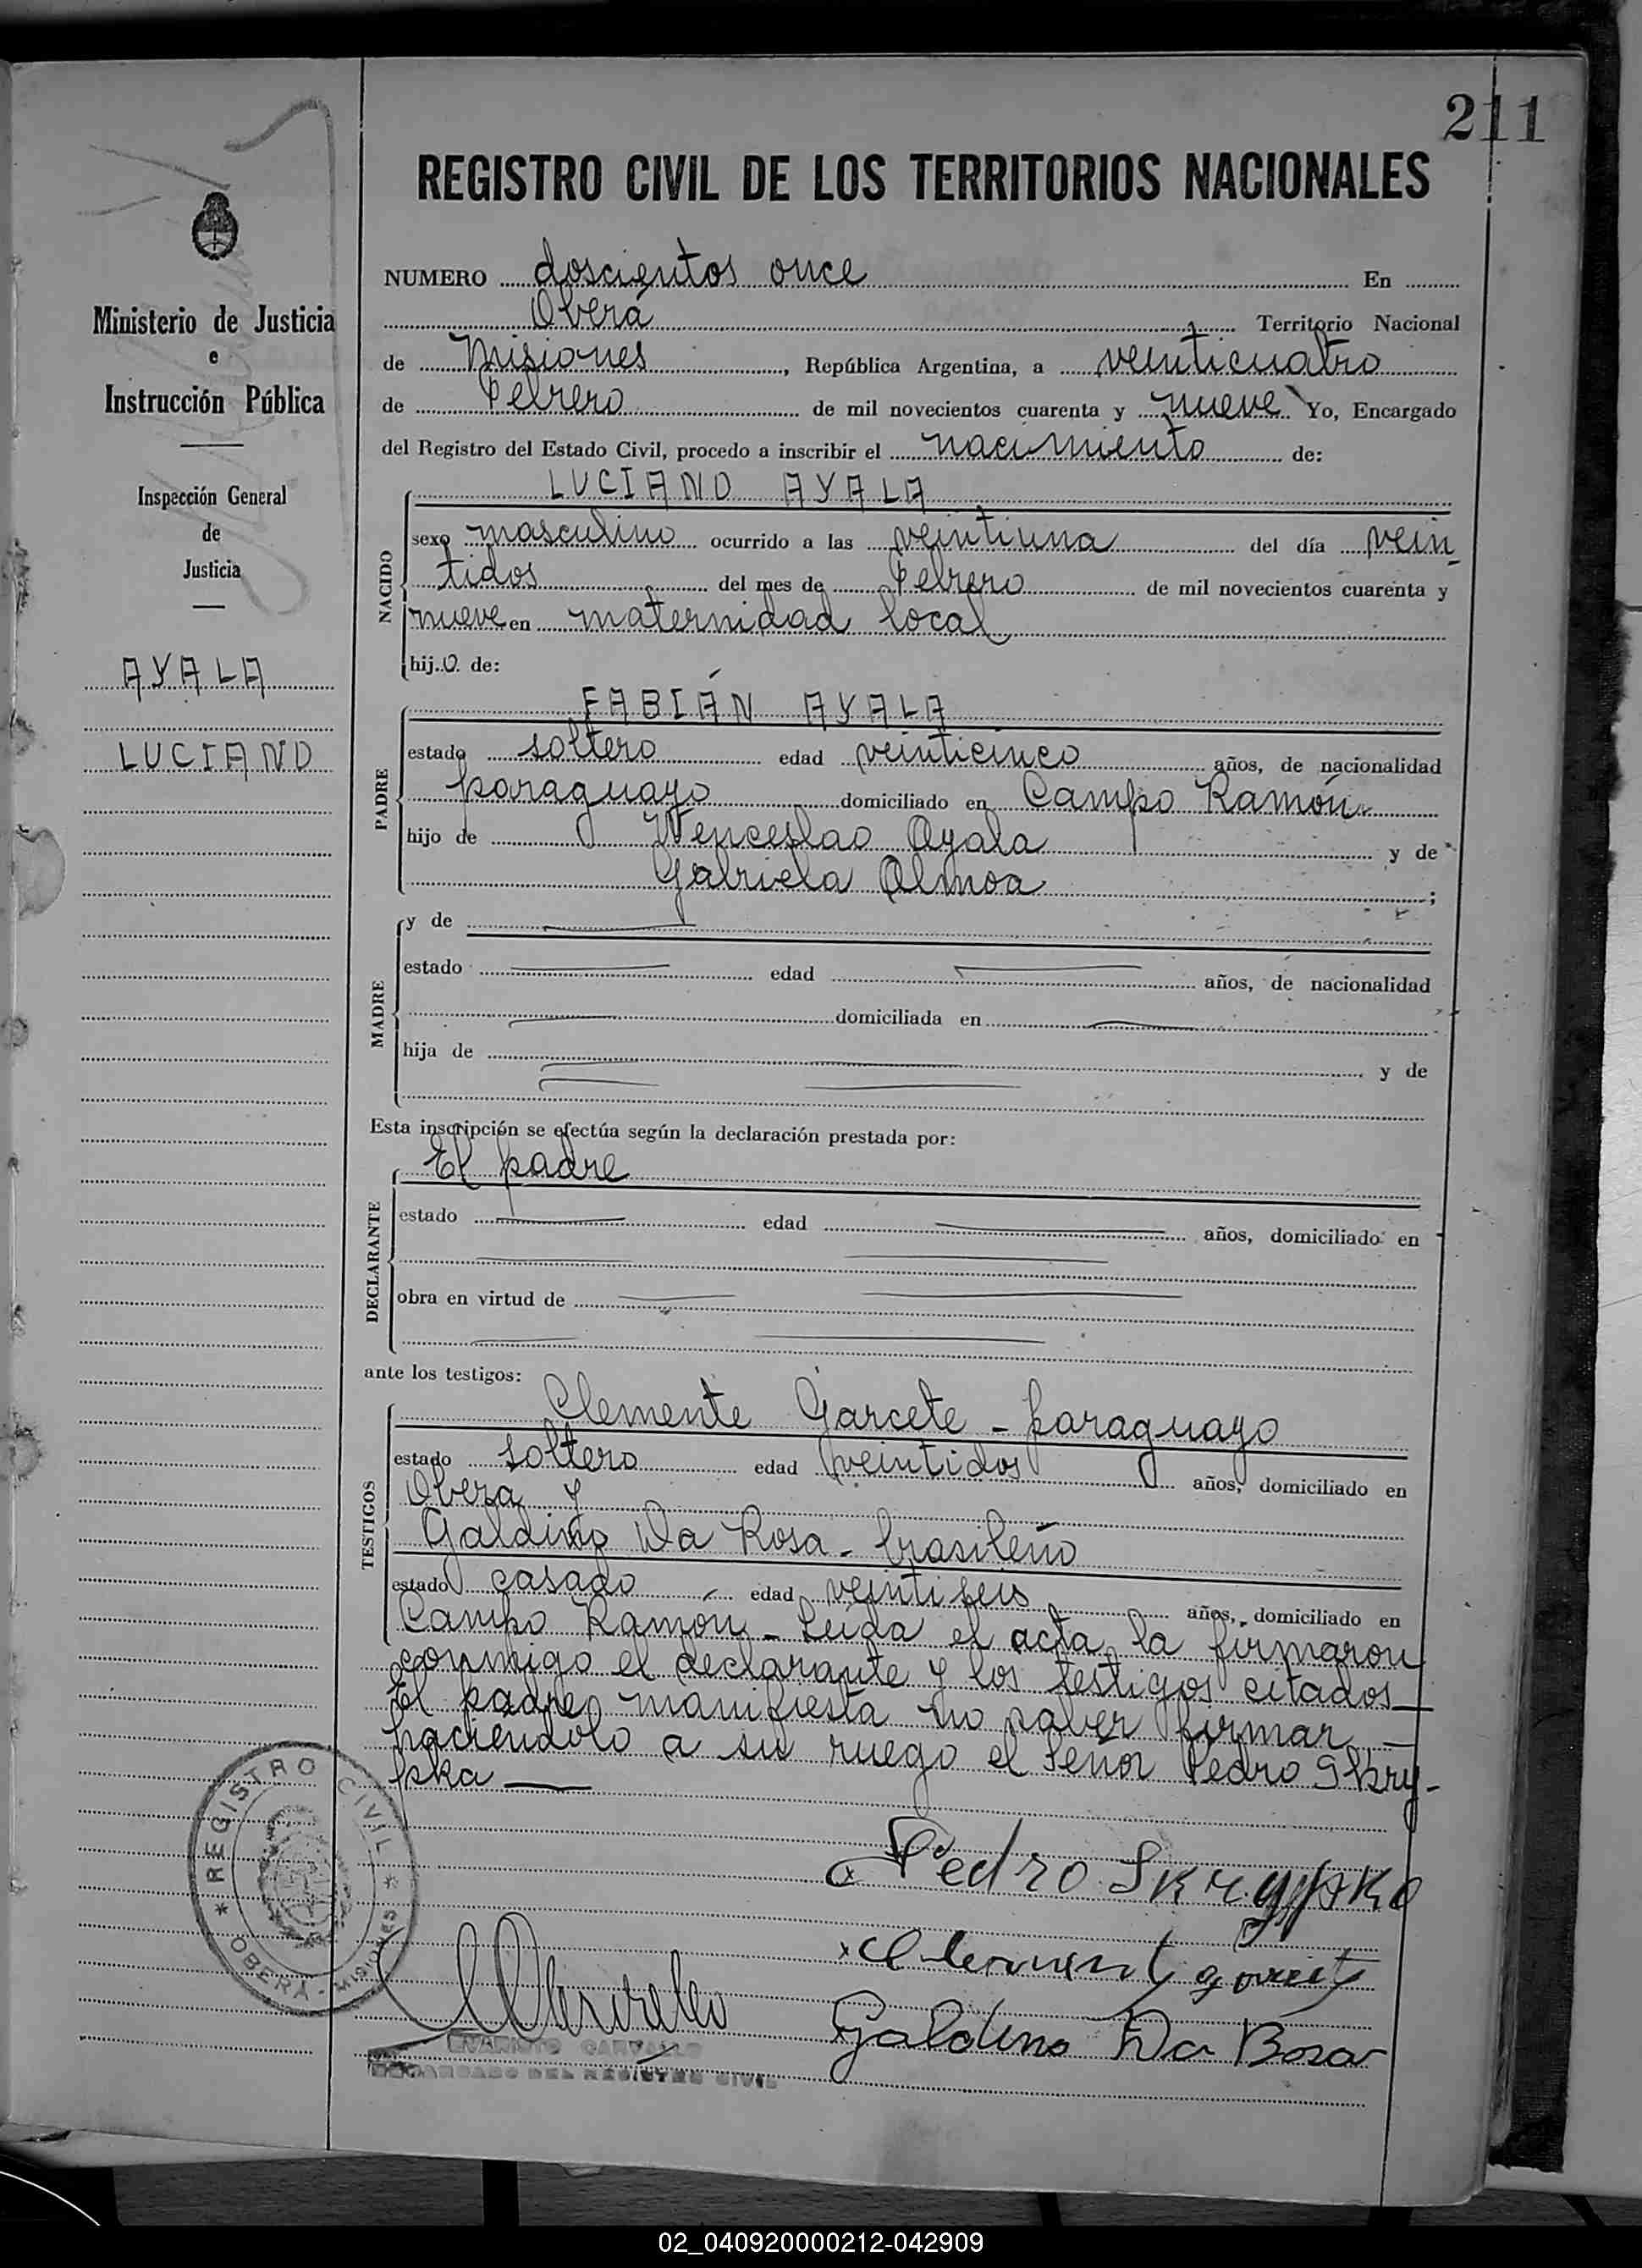 211
REGISTRO CIVIL DE LOS TERRITORIOS NACIONALES
Ministerio de Justicia
e
Instrucción Pública
Inspección General
de
Justicia
AYALA
LUCIANO
NUMERO doscientos once En
Oberá Territorio Nacional
de Misiones, República Argentina, a veinticuatro
de Febrero de mil novecientos cuarenta y nueve Yo, Encargado
del Registro del Estado Civil, procedo a inscribir el nacimiento de:
NACIDO
LUCIANO AYALA
sexo masculino ocurrido a las veintiuna del día vein
tidos del mes de Febrero de mil novecientos cuarenta y
nueve en maternidad local
hijo de:
PADRE
FABIÁN AYALA
estado soltero edad veinticinco años, de nacionalidad
paraguayo domiciliado en Campo Ramón
hijo de Wenceslao Ayala y de
Gabriela Almoa ;
MADRE
y de
estado edad años, de nacionalidad
domiciliada en
hija de y de
Esta inscripción se efectúa según la declaración prestada por:
DECLARANTE
El padre
estado edad años, domiciliado en
obra en virtud de
ante los testigos:
TESTIGOS
Clemente Garcete - paraguayo
estado soltero edad veintidos años, domiciliado en
Obera y
Galdino Da Rosa - brasileño
estado casado edad veintiseis años, domiciliado en
Campo Ramón - Leida el acta la firmaron
conmigo el declarante y los testigos citados
El padre manifiesta no saber firmar -
haciéndolo a su ruego el Señor Pedro Skry-
pka
REGISTRO CIVIL
OBERÁ - MISIONES
Pedro Skrypka
Galdino Da Rosa
EVARISTO CARVALLO
ENCARGADO DEL REGISTRO CIVIL
02_040920000212-042909